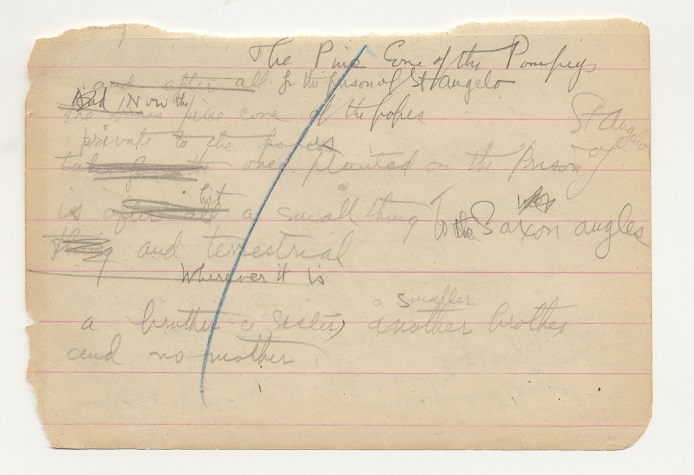 The Pine Cone of the Pompeys
and after all for the prison of St Angelo
And Now the
the pine cone of the popes
St Angelo
private to the popes of
one planted on the Prison
is after all but a small thing to the Saxon angles
thing and terrestrial
Wherever it is
a smaller
a brother a sister, another brother
and no mother